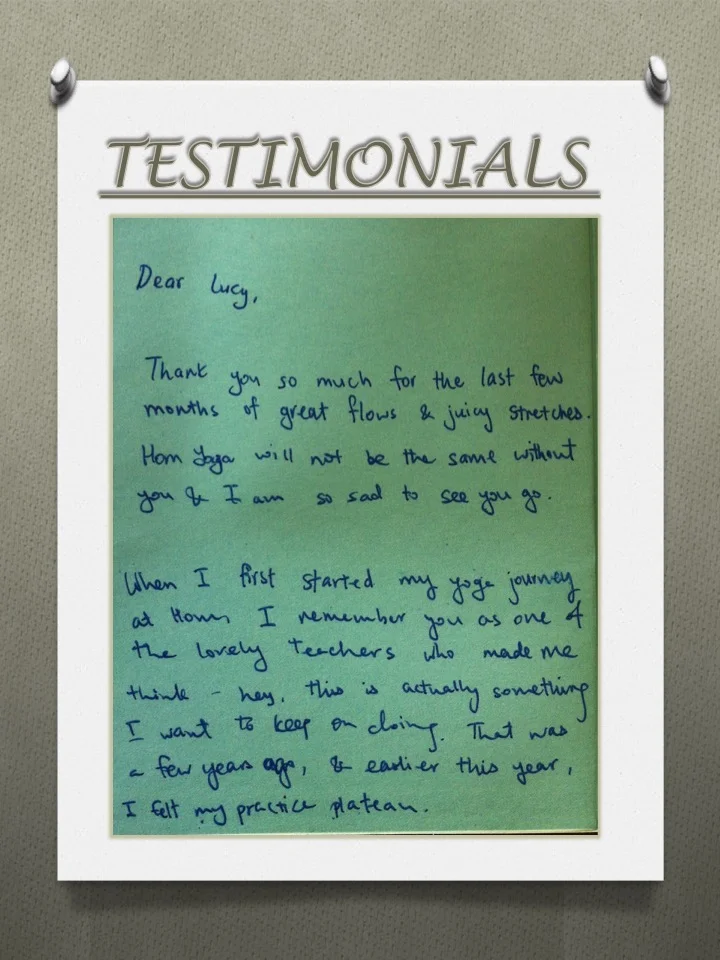 TESTIMONIALS
Dear Lucy,
Thank you so much for the last few
months of great flows & juicy stretches.
Hom Yoga will not be the same without
you & I am so sad to see you go.
When I first started my yoga journey
at Hom, I remember you as one of
the lovely teachers who made me
think - hey, this is actually something
I want to keep on doing. That was
a few years ago, & earlier this year,
I felt my practice plateau.